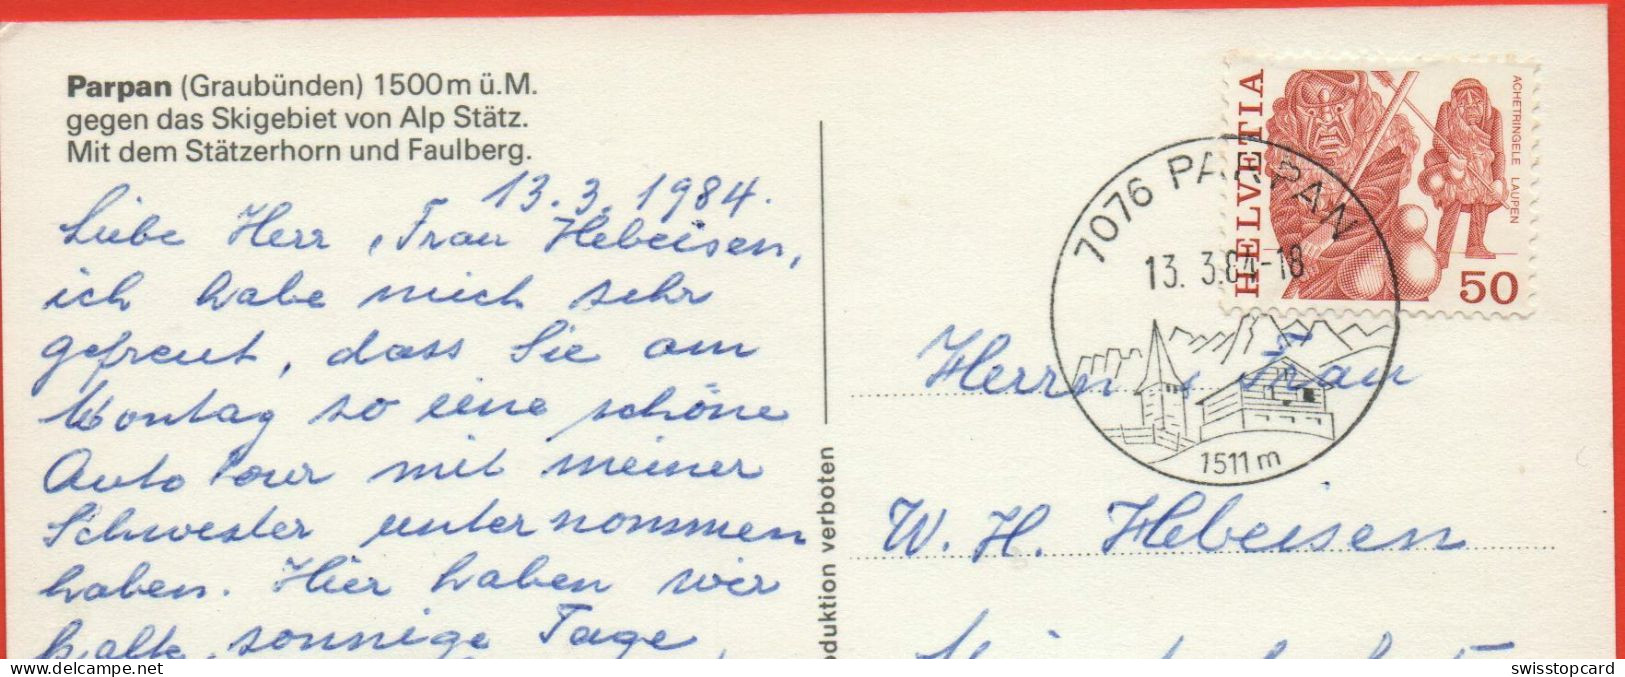 Parpan (Graubünden) 1500 m ü.M.
gegen das Skigebiet von Alp Stätz.
Mit dem Stätzerhorn und Faulberg.
13.3.1984.
Liebe Herr, Frau Hebeisen,
ich habe mich sehr
gefreut, dass Sie am
Montag so eine schöne
Auto Tour mit meiner
Schwester unternommen
haben. Hier haben wir
kalte, sonnige Tage,
oduktion verboten
HELVETIA
ACHETRINGELE LAUPEN
50
7076 PARPAN
13. 3.84-18
1511 m
Herrn, Frau
W. H. Hebeisen
swisstopcard